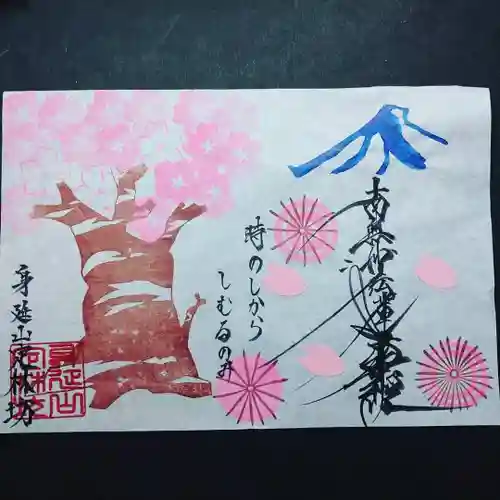 南無妙法蓮華経
時のしから
しむるのみ
身延山定林坊